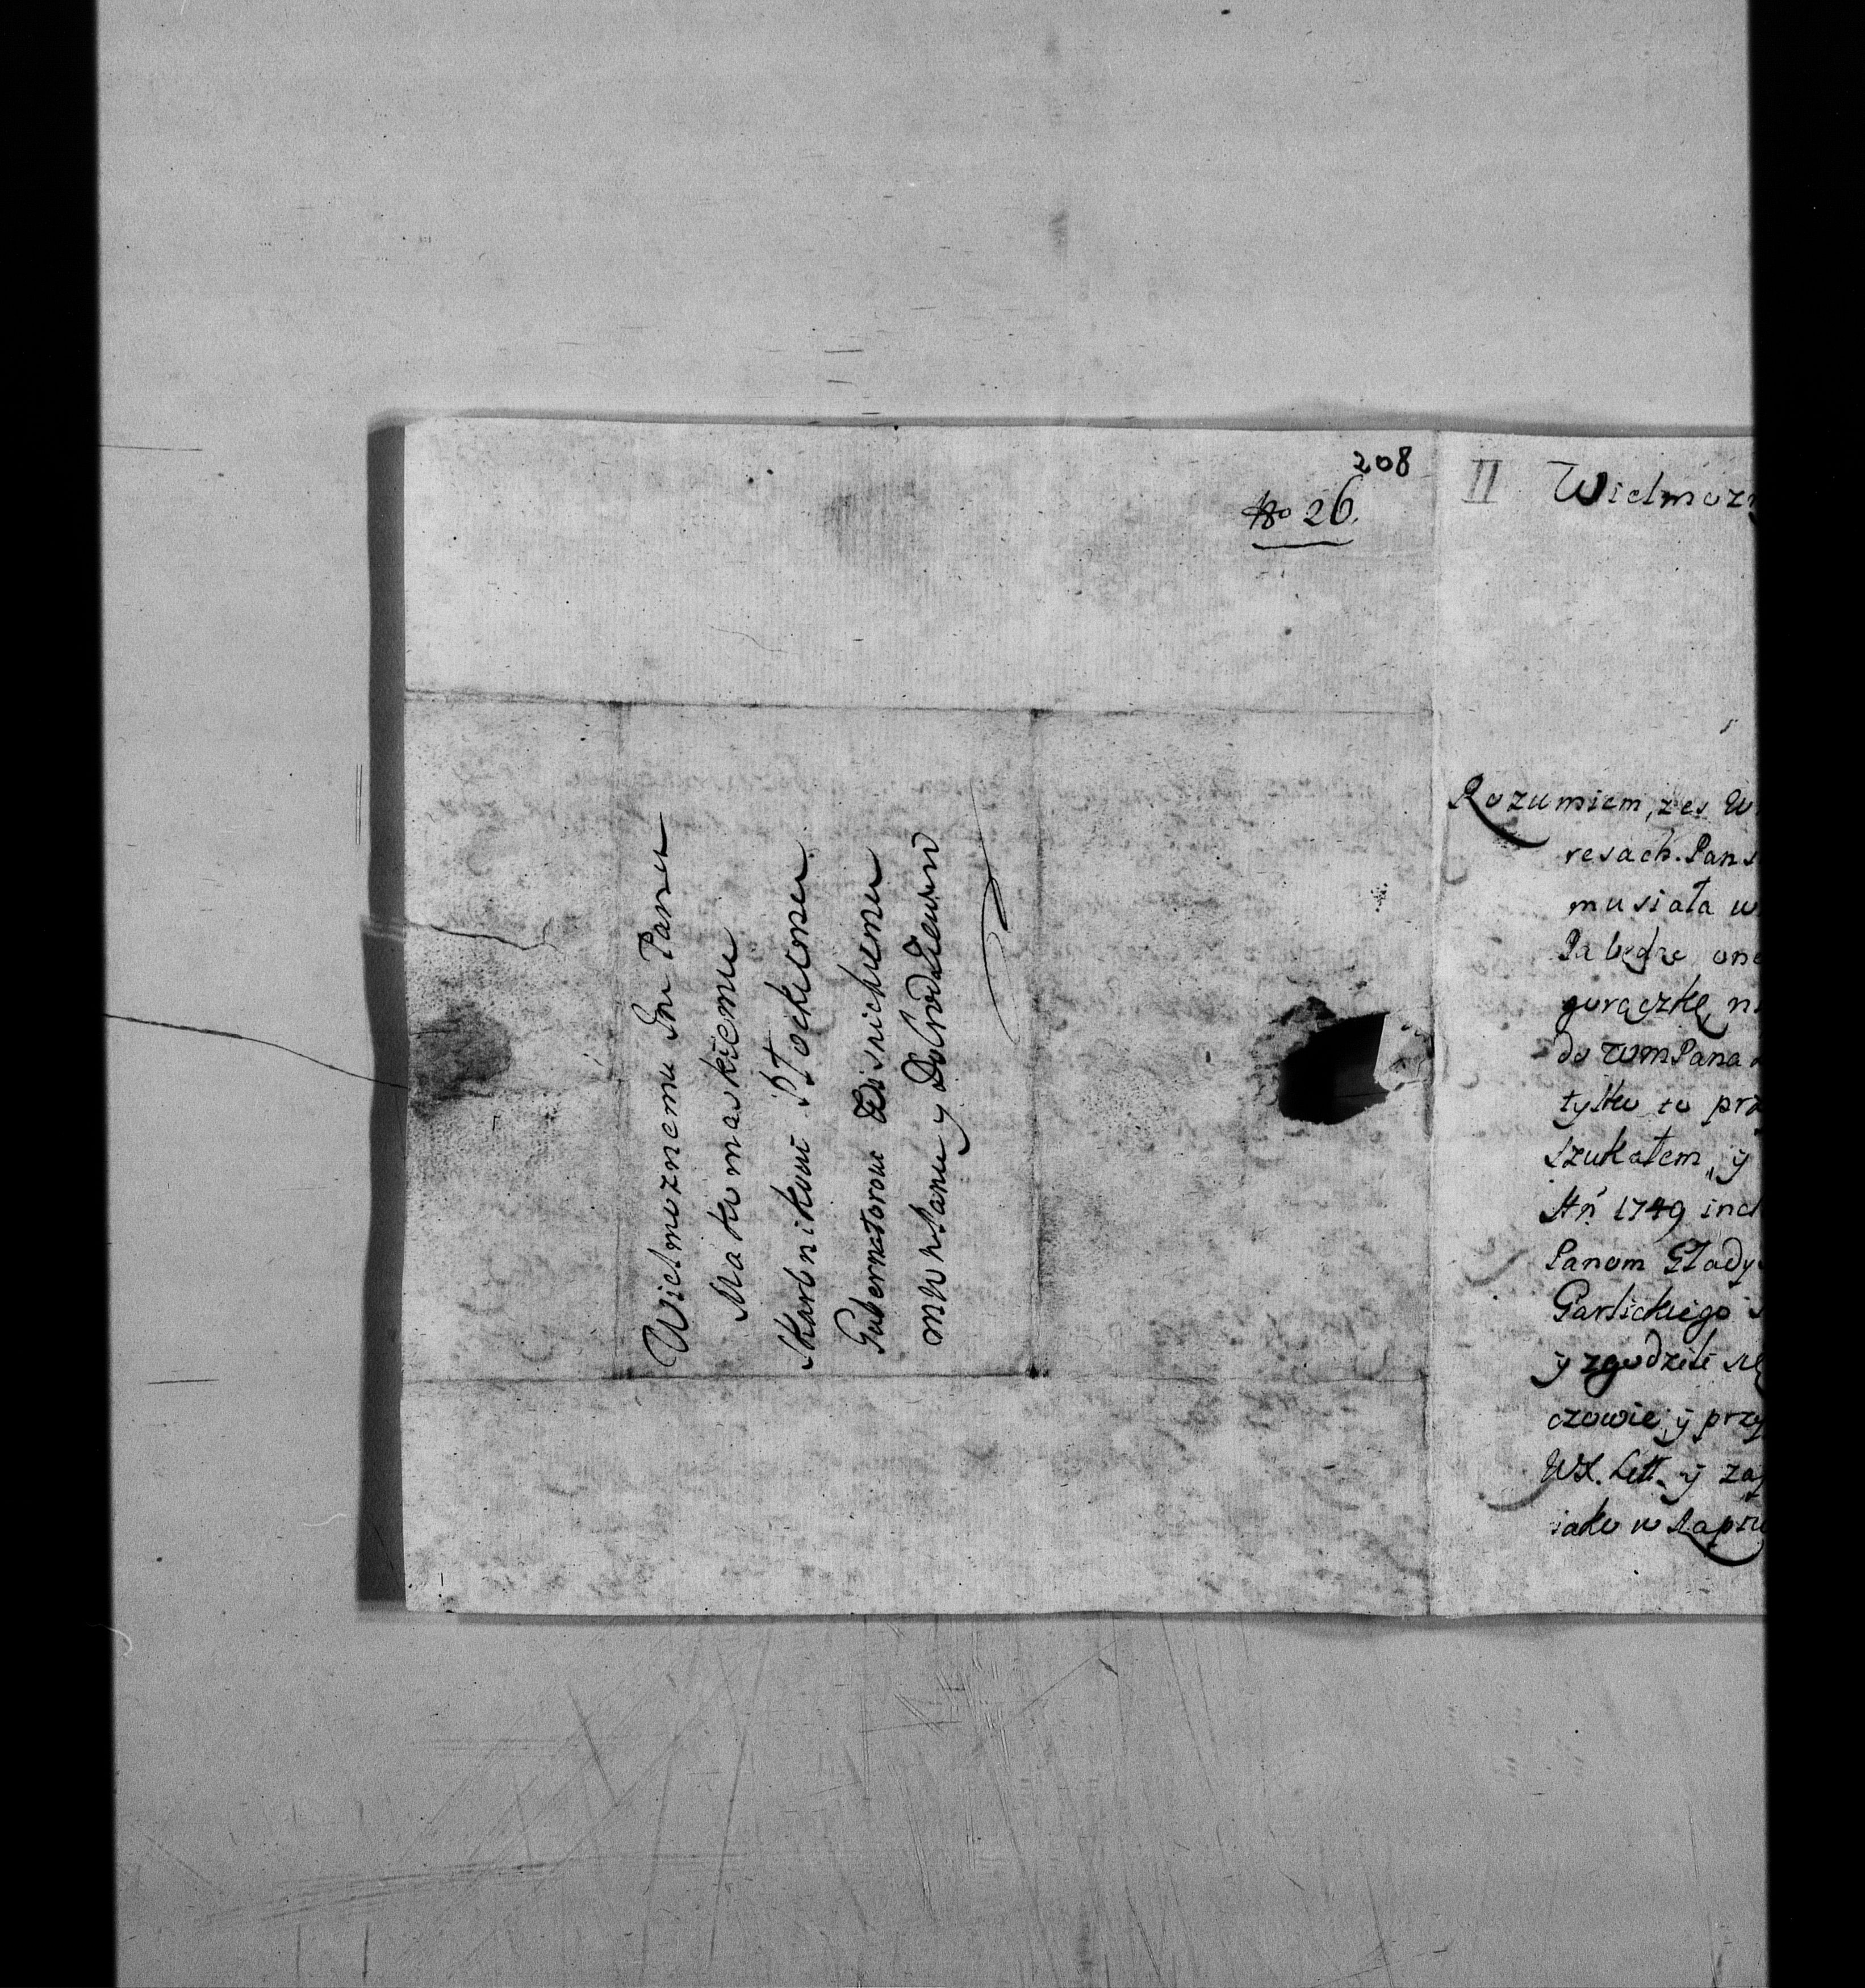 208
No 26.
Wielmoznemu Jm Panu
Makomaskiemu
Skarbnikowi Płockiemu
Gubernatorowi
MWPanu y Dobrodzieiowi
II Wielmozn
Rozumiem, zes W
resach. Pans
musiała w
Pa będze one
gorączkę n
do WMPana
tylko to prz
szukałem, y
1749 incl
Panom Gładys
Garlickiego
y zgodzili się
czowie, y przy
Lett. y za
iako w